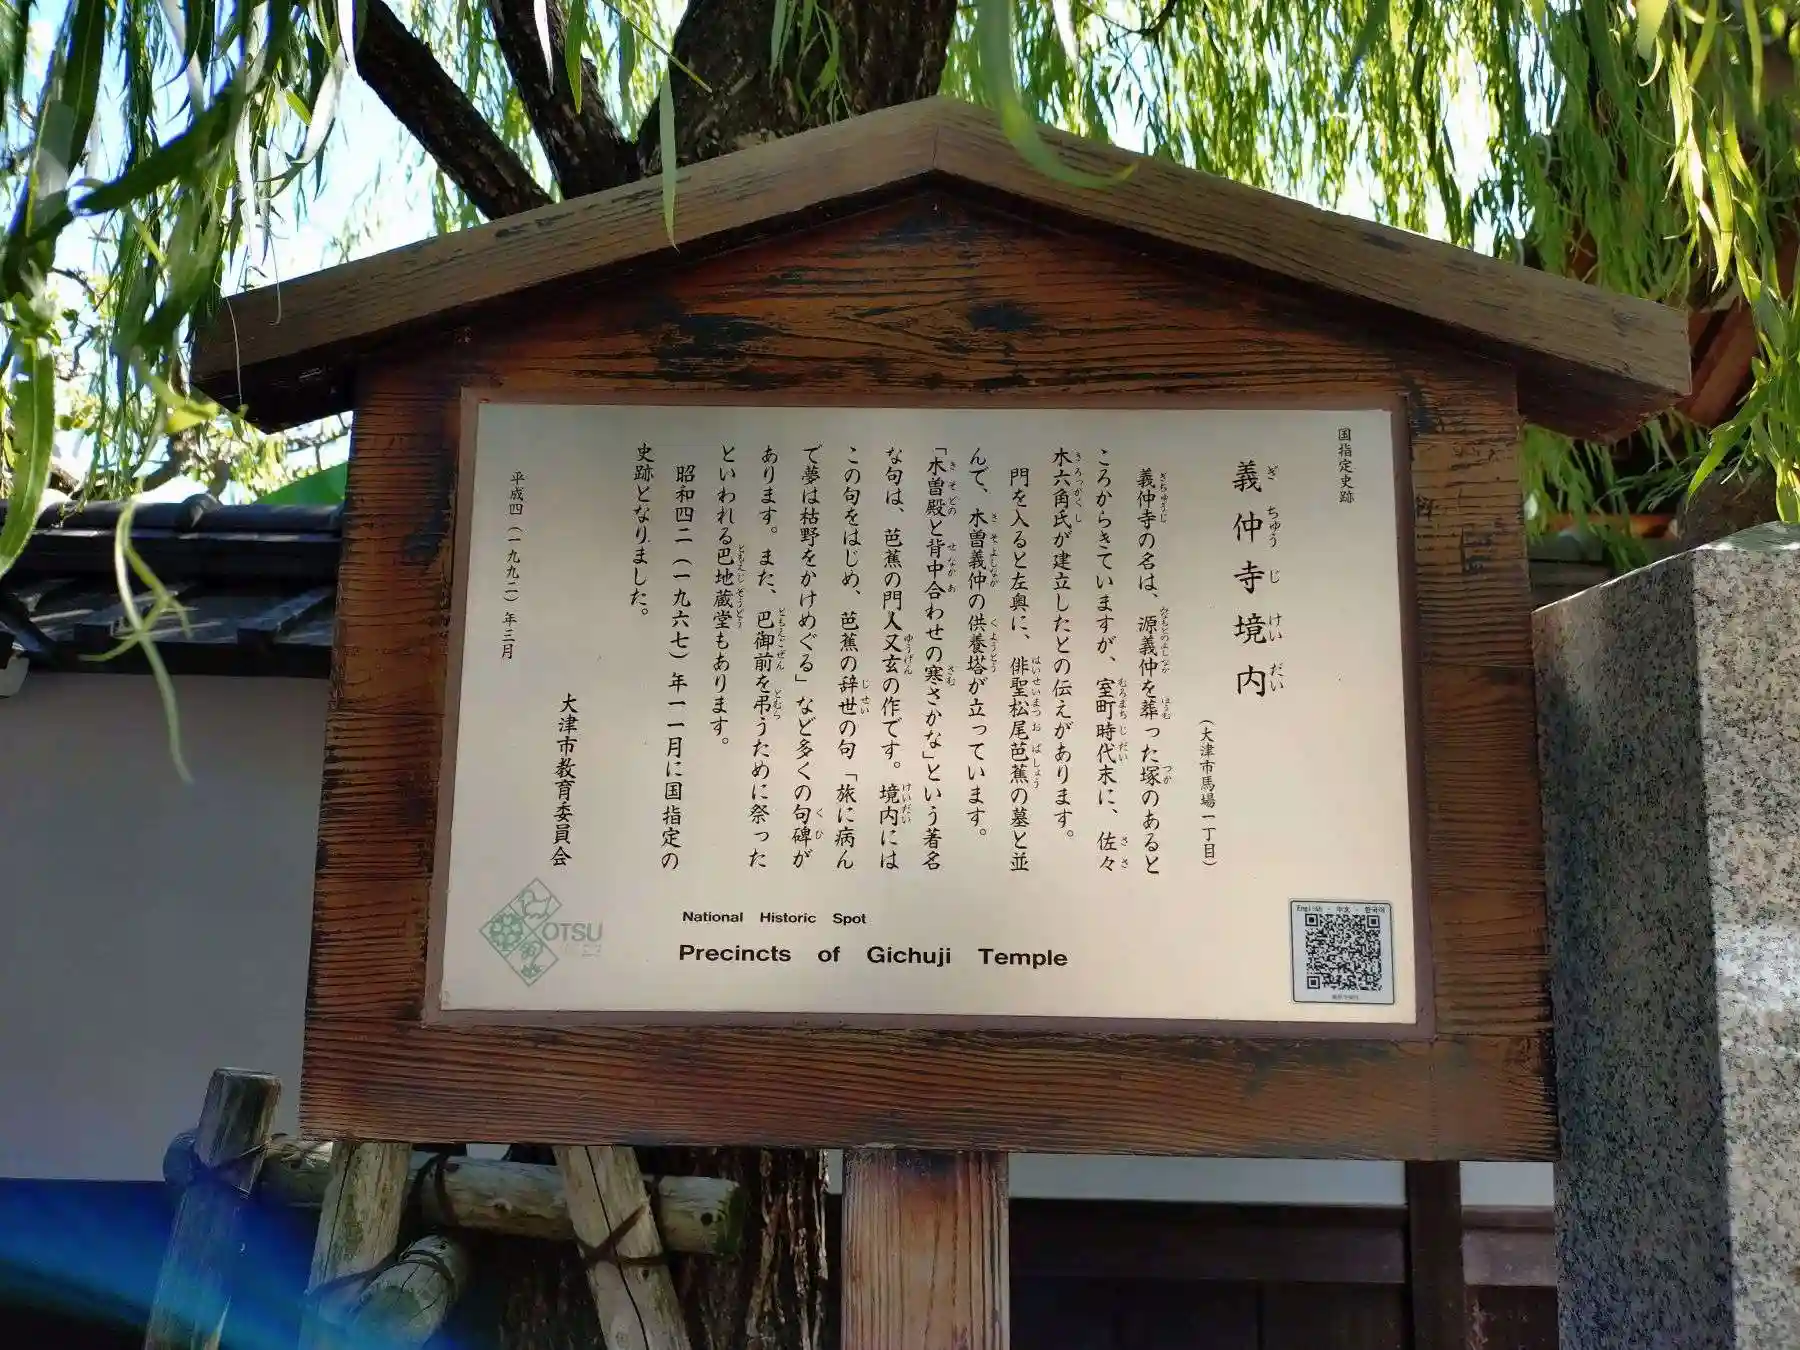 国指定史跡
義仲寺境内
ぎちゅうじけいだい
(大津市馬場一丁目)
義仲寺の名は、源義仲を葬った塚のあると
ころからきていますが、室町時代末に、佐々
木六角氏が建立したとの伝えがあります。
門を入ると左奥に、俳聖松尾芭蕉の墓と並
んで、木曽義仲の供養塔が立っています。
「木曽殿と背中合わせの寒さかな」という著名
な句は、芭蕉の門人又玄の作です。境内には
この句をはじめ、芭蕉の辞世の句「旅に病ん
で夢は枯野をかけめぐる」など多くの句碑が
あります。また、巴御前を弔うために祭った
といわれる巴地蔵堂もあります。
昭和四二(一九六七)年一一月に国指定の
史跡となりました。
大津市教育委員会
平成四(一九九二)年三月
National Historic Spot
Precincts of Gichuji Temple
OTSU
English・中文・한국어